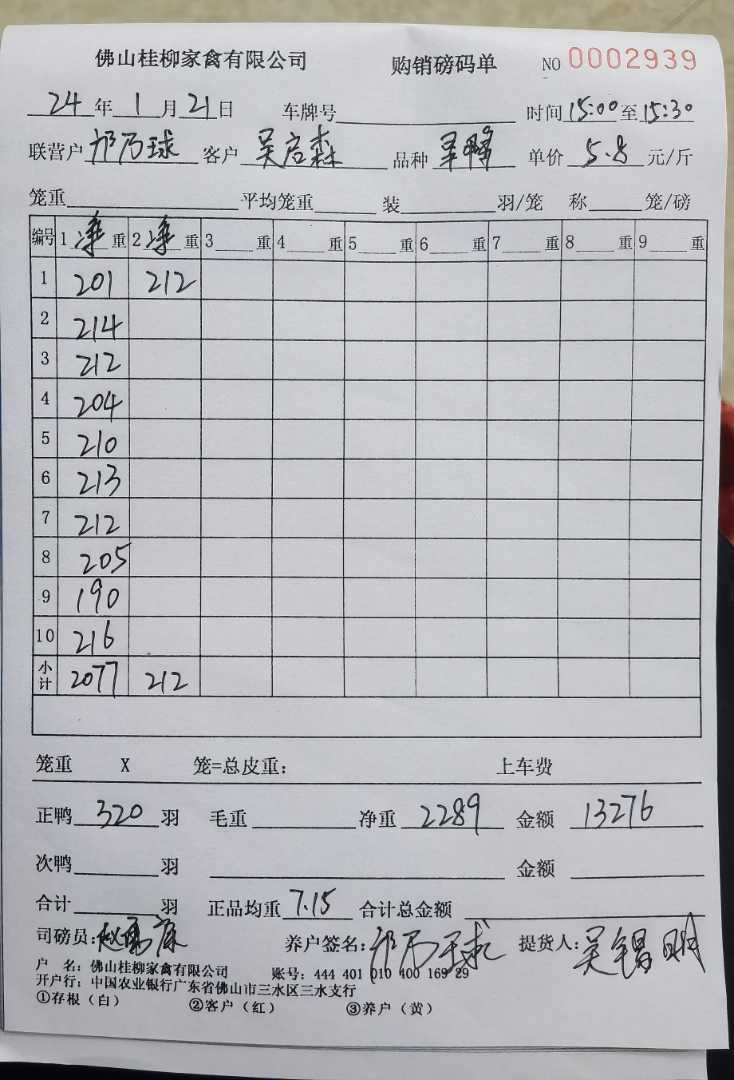 佛山桂柳家禽有限公司 购销磅码单 NO 0002939
24年1月21日 车牌号 时间15:00至15:30
联营户 乃球 客户 吴启森 品种 鸭 单价 5.8 元/斤
笼重 平均笼重 装 羽/笼 称 笼/磅
编号 1 净重 2 净重 3 重 4 重 5 重 6 重 7 重 8 重 9 重
1 201 212
2 214
3 212
4 204
5 210
6 213
7 212
8 205
9 190
10 216
小计 2077 212
笼重 X 笼=总皮重: 上车费
正鸭 320 羽 毛重 净重 2289 金额 13276
次鸭 羽 金额
合计 羽 正品均重 7.15 合计总金额
司磅员: 赵 养户签名: 乃球 提货人: 吴 明
户 名: 佛山桂柳家禽有限公司 账号: 444 401 010 400 169 29
开户行: 中国农业银行广东省佛山市三水区三水支行
①存根(白) ②客户(红) ③养户(黄)